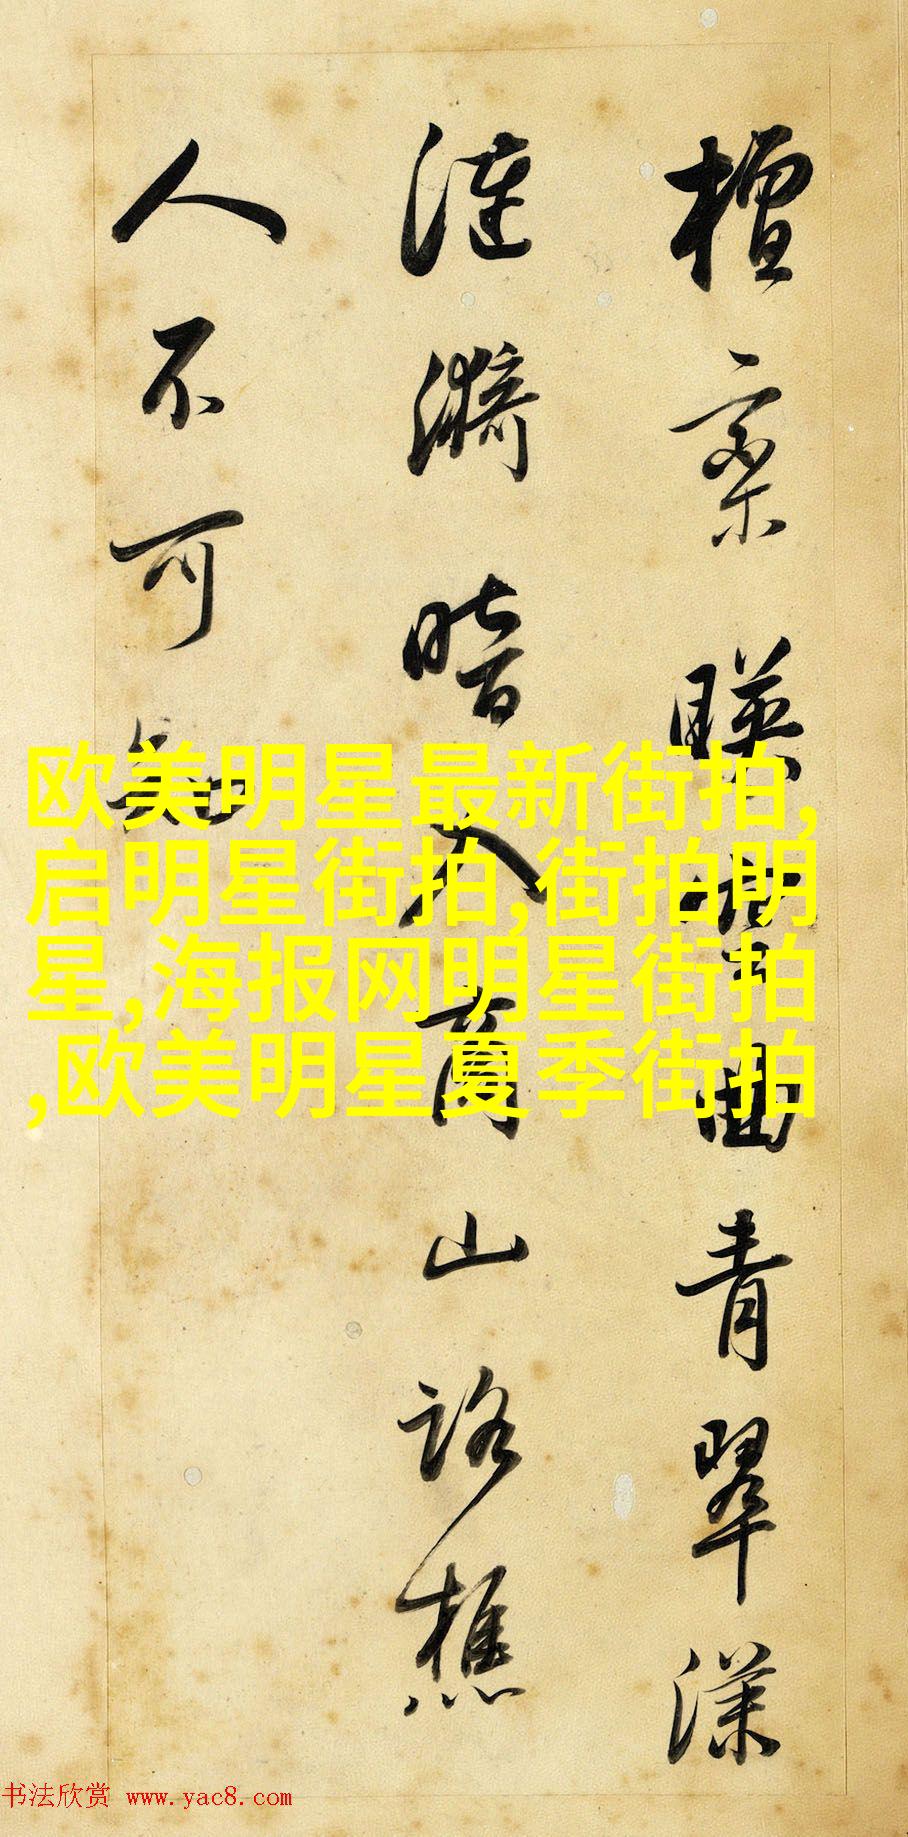 檀欒暎空曲青翠漾
漣漪暗入商山路樵
人不可知
欧美明星最新街拍,
启明星街拍,街拍明
星,海报网明星街拍
,欧美明星夏季街拍
书法欣赏 www.yac8.com